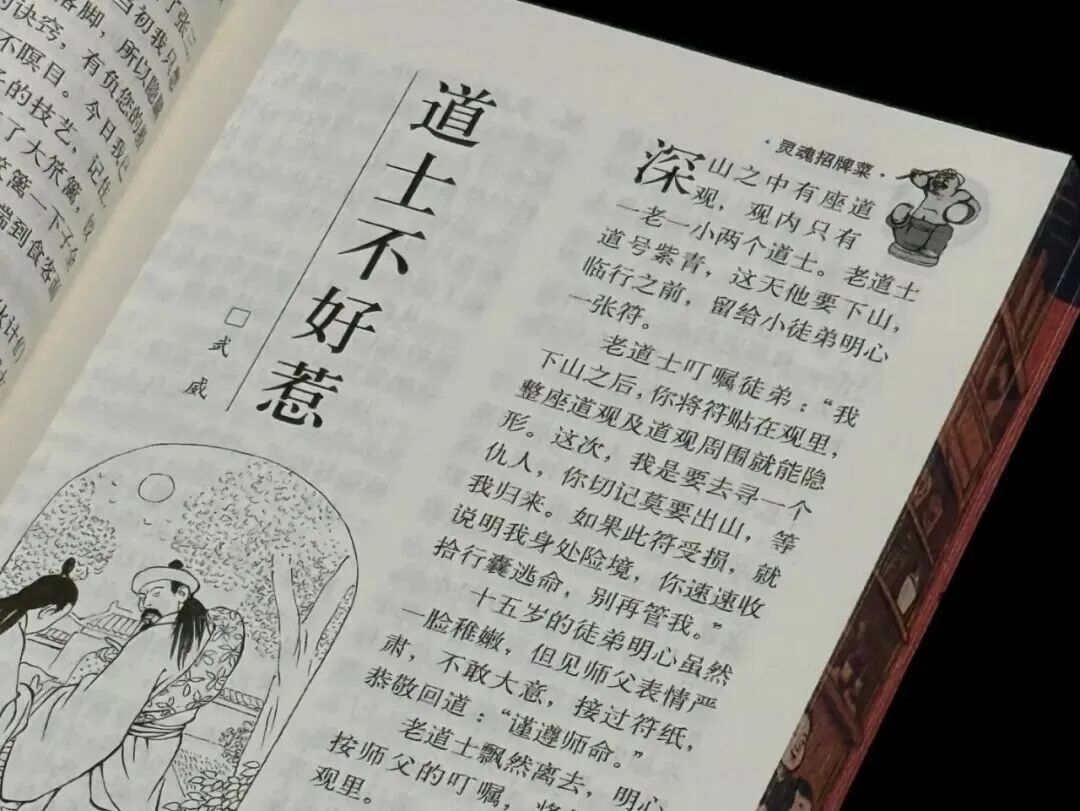 当初我只想
落脚，所以隐瞒
的诀窍，有负您的
不瞑目。今日我
的技艺，记住，
了大笊篱，
笊篱一下子
端到食客面
伙计们
灵魂招牌菜
道士不好惹
□武威
深山之中有座道
观，观内只有
一老一小两个道士。老道士
道号紫青，这天他要下山，
临行之前，留给小徒弟明心
一张符。
老道士叮嘱徒弟：“我
下山之后，你将符贴在观里，
整座道观及道观周围就能隐
形。这次，我是要去寻一个
仇人，你切记莫要出山，等
我归来。如果此符受损，就
说明我身处险境，你速速收
拾行囊逃命，别再管我。”
十五岁的徒弟明心虽然
一脸稚嫩，但见师父表情严
肃，不敢大意，接过符纸，
恭敬回道：“谨遵师命。”
老道士飘然离去，明心
按师父的叮嘱，将
观里。